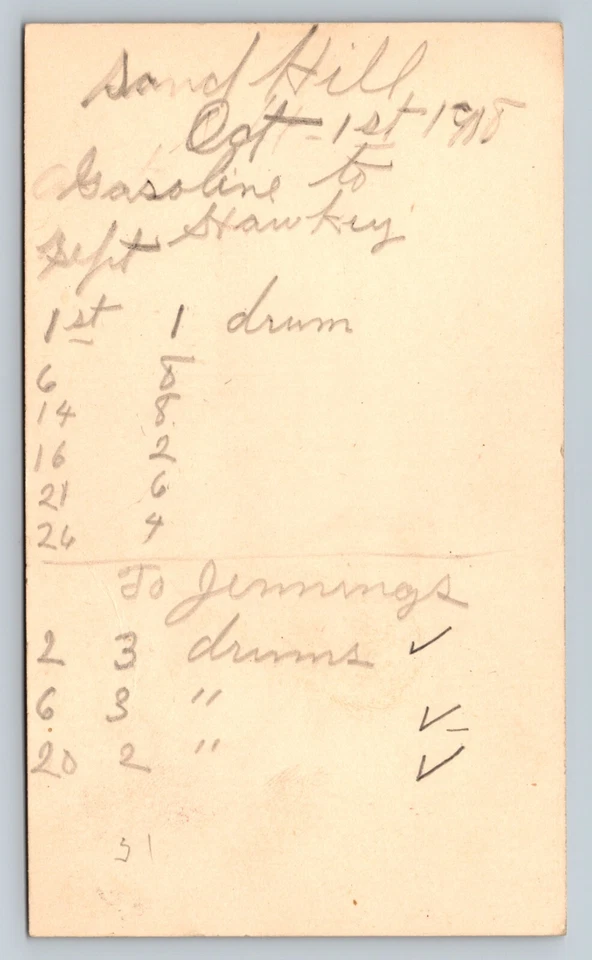 Sand Hill
Oct - 1st 1918
Gasoline to
Hawkey
Sept
1st 1 drum
6 8
14 8
16 2
21 6
24 4
To Jennings
2 3 drums ✓
6 3 " ✓
20 2 " ✓
51